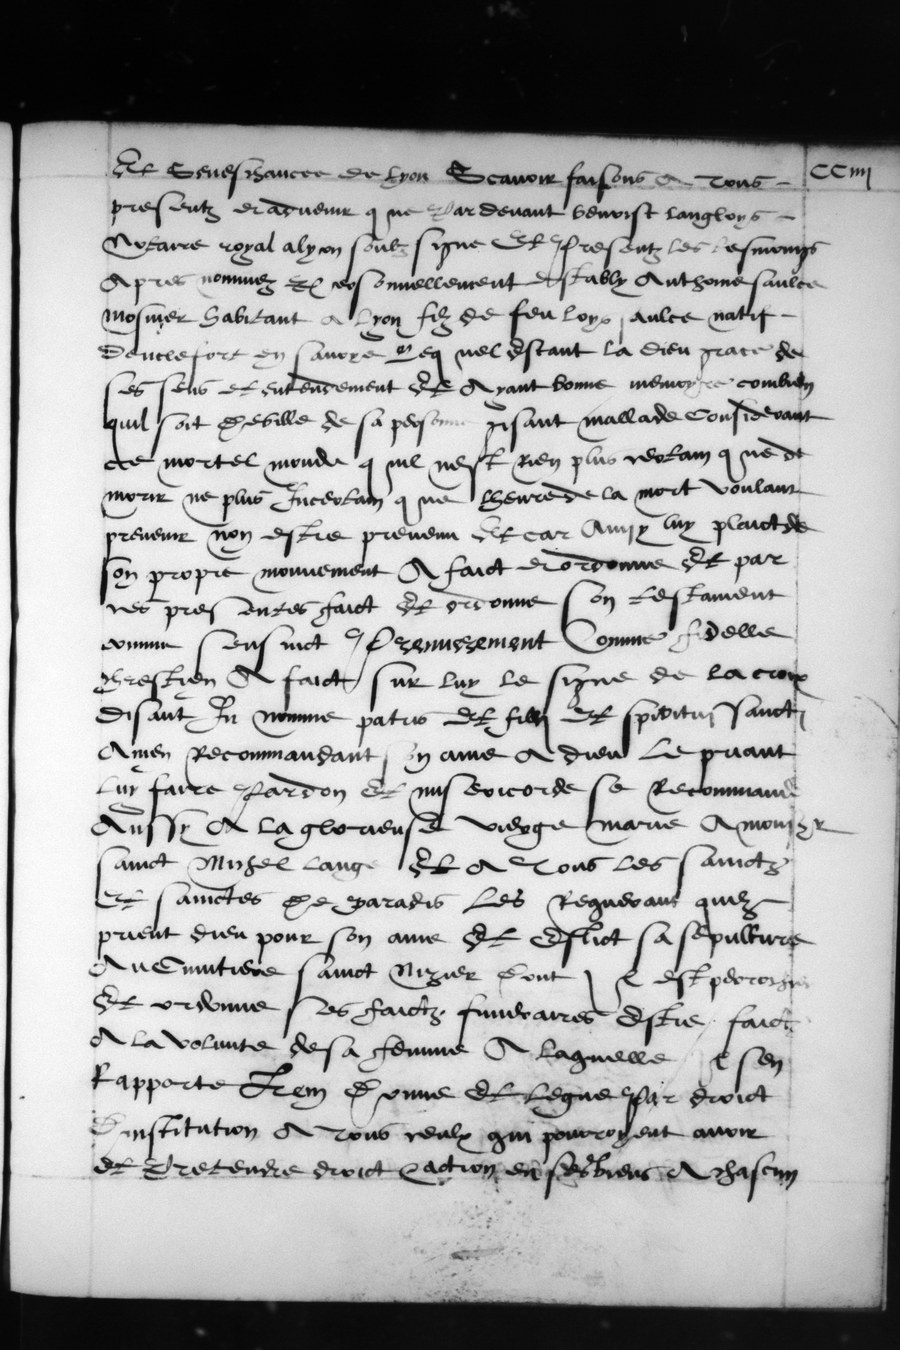 CCiiii
Et Seneschaucee de Lyon Scavoir faisons A Tous
presentz et advenir que Par devant benoist langloys
Notaire royal a lyon soubz signe Et Presentz les tesmoings
Apres nommez Et personnellement estably Anthoine saulce
mosnier habitant A Lyon filz de feu loys saulce natif
de en savoye Lequel Estant la dieu grace de
ses sens et entendement Et Ayant bonne memoyre combien
quil soit debille de sa personne gisant mallade Considerant
ce mortel monde quil nest Rien plus certain que de
morir ne plus Incertain que lheure de la mort voulant
prevenir non estre prevenu Et car Ainsy luy plaict de
son propre mouvement A faict et ordonne Et par
ces presentes faict Et ordonne son testament
comme sensuict Premierement Comme fidelle
chrestien A faict sur luy le signe de la croix
disant In nomine patris et filii et spiritus sancti
Amen Recommandant son ame A dieu Le priant
luy faire Pardon Et misericorde se Recommande
Aussy A la glorieuse vierge marie A monsr
sainct Michel lange Et A Tous les sainctz
Et sainctes de paradis Les Requerant quilz
prient dieu pour son ame Et Eslict sa sepulture
Au Cimitiere sainct Nizier dont Il est perrochien
Et ordonne ses faictz funeraires Estre faictz
A la volunte de sa femme A laquelle Il sen
Rapporte Item donne et legue Par droict
dinstitution A Tous ceulx qui pourroyent avoir
et Pretendre droict Et action en ses biens A chascun